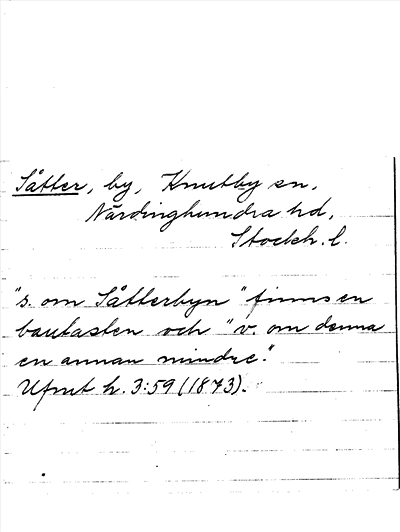 Såtter, by, Knutby sn,
Närdinghundra hd,
Stockh. l.
"s. om Såtterbyn" finns en
bautasten och "v. om denna
en annan mindre".
Ufmt h. 3:59 (1873).